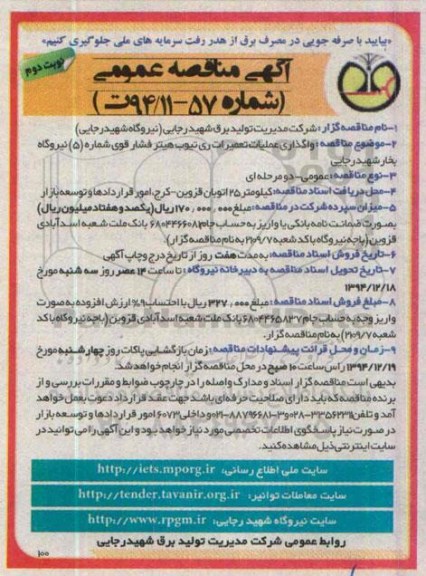 «بیایید با صرفه جویی در مصرف برق از هدر رفت سرمایه های ملی جلوگیری کنیم»
نوبت دوم
آگهی مناقصه عمومی
(شماره ۵۷-۹۴/۱۱ت)
۱-نام مناقصه گزار: شرکت مدیریت تولید برق شهید رجایی (نیروگاه شهید رجایی)
۲-موضوع مناقصه: واگذاری عملیات تعمیرات ری تیوب هیتر فشار قوی شماره (۵) نیروگاه
بخار شهید رجایی
۳-نوع مناقصه: عمومی- دو مرحله ای
۴-محل دریافت اسناد مناقصه: کیلومتر ۲۵ اتوبان قزوین-کرج، امور قراردادها و توسعه بازار
۵-میزان سپرده شرکت در مناقصه: مبلغ ۱۷۰,۰۰۰,۰۰۰ ریال (یکصد و هفتاد میلیون ریال)
بصورت ضمانت نامه بانکی یا واریز به حساب جام ۶۸۰۴۴۶۶۰۸۱ بانک ملت شعبه اسدآبادی
قزوین (باجه نیروگاه با کد شعبه ۲۱۰۹/۷ به نام مناقصه گزار).
۶-تاریخ فروش اسناد مناقصه: به مدت هفت روز از تاریخ درج و چاپ آگهی
۷-تاریخ تحویل اسناد مناقصه به دبیرخانه نیروگاه: تا ساعت ۱۴ عصر روز سه شنبه مورخ
۱۳۹۴/۱۲/۱۸
۸-مبلغ فروش اسناد مناقصه: مبلغ ۳۲۷,۰۰۰ ریال با احتساب ۹% ارزش افزوده به صورت
واریز وجه به حساب جام ۶۸۰۴۴۶۵۸۳۷ بانک ملت شعبه اسدآبادی قزوین (باجه نیروگاه با کد
شعبه ۲۱۰۹/۷) به نام مناقصه گزار.
۹-زمان و محل قرائت پیشنهادات مناقصه: زمان بازگشایی پاکات روز چهارشنبه مورخ
۱۳۹۴/۱۲/۱۹ راس ساعت ۱۰ صبح در محل مناقصه گزار انجام خواهد شد.
بدیهی است مناقصه گزار اسناد و مدارک واصله را در چارچوب ضوابط و مقررات بررسی و از
برنده مناقصه که باید دارای صلاحیت حرفه ای باشد جهت عقد قرارداد دعوت بعمل خواهد
آمد و تلفن امور قراردادها و توسعه بازار
در صورت نیاز پاسخگوی اطلاعات تخصصی مورد نیاز خواهد بود و این آگهی را می توانید در
سایت اینترنتی ذیل مشاهده کنید.
سایت ملی اطلاع رسانی: http://iets.mporg.ir
سایت معاملات توانیر: http://tender.tavanir.org.ir
سایت نیروگاه شهید رجایی: http://www.rpgm.ir
روابط عمومی شرکت مدیریت تولید برق شهید رجایی
۱۰۰